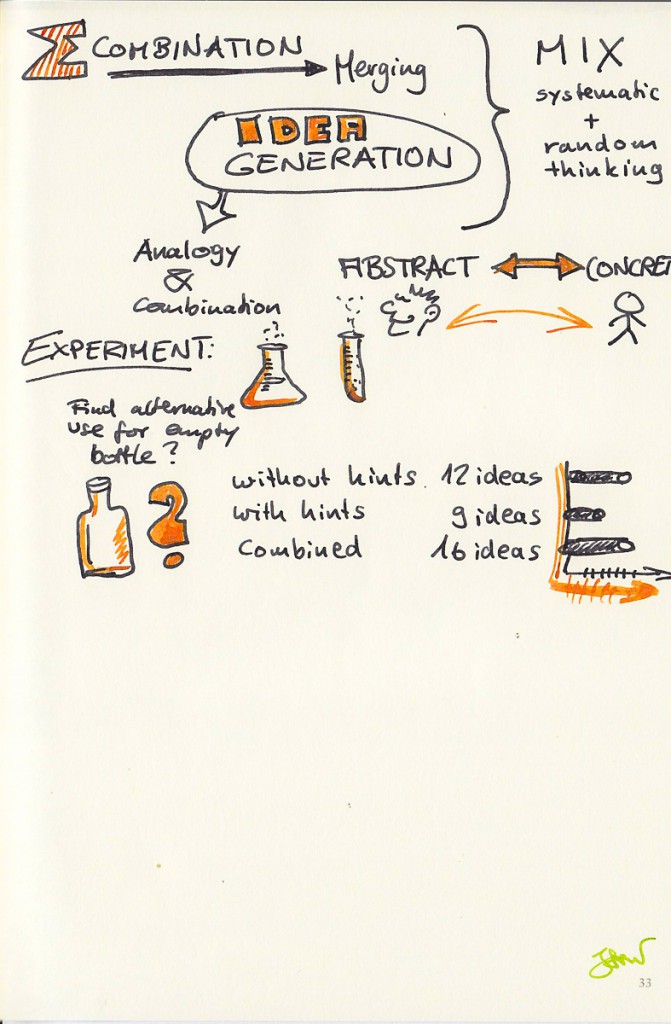 Σ COMBINATION → Merging
MIX
systematic
+
random
thinking
IDEA
GENERATION
Analogy
&
Combination
ABSTRACT ↔ CONCRET
EXPERIMENT:
Find alternative
use for empty
bottle?
?
without hints 12 ideas
with hints 9 ideas
Combined 16 ideas
33